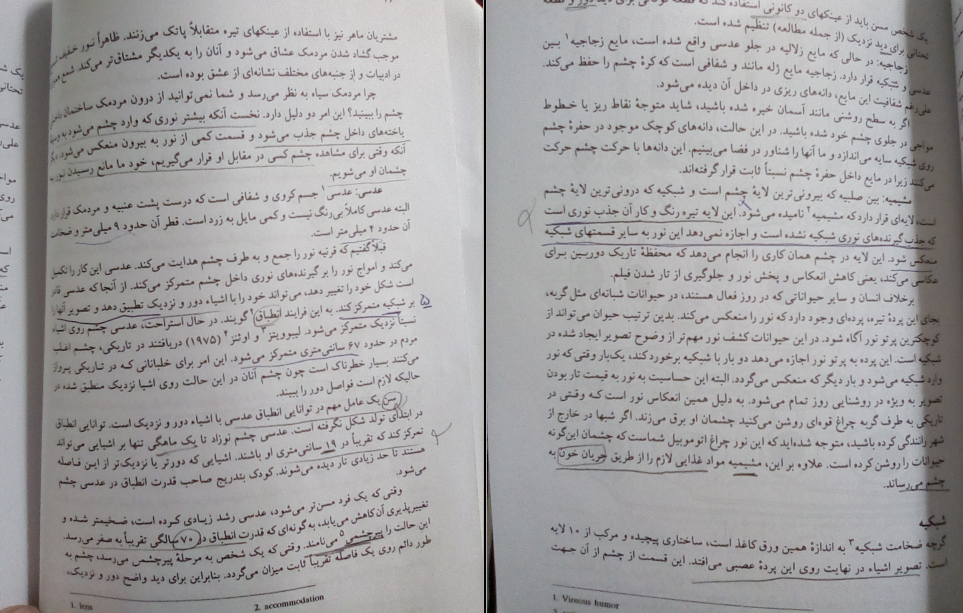 مشتریان ماهر نیز با استفاده از عینکهای تیره متقابلاً پاتک می‌زنند. ظاهراً نور خفیف
موجب گشاد شدن مردمک عشاق می‌شود و آنان را به یکدیگر مشتاق‌تر می‌کند. شمع
در ادبیات و از جنبه‌های مختلف نشانه‌ای از عشق بوده است.
چرا مردمک سیاه به نظر می‌رسد و شما نمی‌توانید از درون مردمک ساختمان داخلی
چشم را ببینید؟ این امر دو دلیل دارد. نخست آنکه بیشتر نوری که وارد چشم می‌شود به وسیله
یاخته‌های داخل چشم جذب می‌شود و قسمت کمی از نور به بیرون منعکس می‌شود.
آنکه وقتی برای مشاهده چشم کسی در مقابل او قرار می‌گیریم، خود ما مانع رسیدن نور به
چشمان او می‌شویم.
عدسی: عدسی۱ جسم کروی و شفافی است که درست پشت عنبیه و مردمک قرار دارد.
البته عدسی کاملاً بی‌رنگ نیست و کمی مایل به زرد است. قطر آن حدود ۹ میلی‌متر و ضخامت
آن حدود ۴ میلی‌متر است.
قبلاً گفتیم که قرنیه نور را جمع و به طرف چشم هدایت می‌کند. عدسی این کار را تکمیل
می‌کند و امواج نور را بر گیرنده‌های نوری داخل چشم متمرکز می‌کند. از آنجا که عدسی قادر
است شکل خود را تغییر دهد، می‌تواند خود را با اشیاء دور و نزدیک تطبیق دهد و تصویر آنها را
بر شبکیه متمرکز کند. به این فرایند انطباق۲ گویند. در حال استراحت، عدسی چشم روی اشیاء
نسبتاً نزدیک متمرکز می‌شود. لیبوویتز۳ و اوئنز۴ (۱۹۷۵) دریافتند در تاریکی، چشم اغلب
مردم در حدود ۶۷ سانتی‌متری متمرکز می‌شود. این امر برای خلبانانی که در تاریکی پرواز
می‌کنند بسیار خطرناک است چون چشم آنان در این حالت روی اشیا نزدیک منطبق شده در
حالیکه لازم است فواصل دور را ببیند.
سن یک عامل مهم در توانایی انطباق عدسی با اشیاء دور و نزدیک است. توانایی انطباق
در ابتدای تولد شکل نگرفته است. عدسی چشم نوزاد تا یک ماهگی تنها بر اشیایی می‌تواند
تمرکز کند که تقریباً در ۱۹ سانتی‌متری او باشند. اشیایی که دورتر یا نزدیک‌تر از این فاصله
هستند تا حد زیادی تار دیده می‌شوند. کودک بتدریج صاحب قدرت انطباق در عدسی چشم
می‌شود.
وقتی که یک فرد مسن‌تر می‌شود، عدسی رشد زیادی کرده است، ضخیمتر شده و
تغییرپذیری آن کاهش می‌یابد، به گونه‌ای که قدرت انطباق در ۷۰ سالگی تقریباً به صفر می‌رسد.
این حالت را پیرچشمی۵ می‌نامند. وقتی که یک شخص به مرحلهٔ پیرچشمی می‌رسد، چشم به
طور دائم روی یک فاصله تقریباً ثابت میزان می‌گردد. بنابراین برای دید واضح دور و نزدیک،
1. lens
2. accommodation
یک شخص مسن باید از عینکهای دو کانونی استفاده کند که قطعه فوقانی برای دید دور و قطعه
تحتانی برای دید نزدیک (از جمله مطالعه) تنظیم شده است.
زجاجیه: در حالی که مایع زلالیه در جلو عدسی واقع شده است، مایع زجاجیه۱ بین
عدسی و شبکیه قرار دارد. زجاجیه مایع ژله مانند و شفافی است که کرهٔ چشم را حفظ می‌کند.
علی‌رغم شفافیت این مایع، دانه‌های ریزی در داخل آن دیده می‌شود.
اگر به سطح روشنی مانند آسمان خیره شده باشید، شاید متوجهٔ نقاط ریز یا خطوط
مواجی در جلوی چشم خود شده باشید. در این حالت، دانه‌های کوچک موجود در حفرهٔ چشم
روی شبکیه سایه می‌اندازد و ما آنها را شناور در فضا می‌بینیم. این دانه‌ها با حرکت چشم حرکت
می‌کنند زیرا در مایع داخل حفرهٔ چشم نسبتاً ثابت قرار گرفته‌اند.
مشیمیه: بین صلبیه که بیرونی‌ترین لایهٔ چشم است و شبکیه که درونی‌ترین لایهٔ چشم
است، لایه‌ای قرار دارد که مشیمیه۲ نامیده می‌شود. این لایه تیره رنگ و کار آن جذب نوری است
که جذب گیرنده‌های نوری شبکیه نشده است و اجازه نمی‌دهد این نور به سایر قسمتهای شبکیه
منعکس شود. این لایه در چشم همان کاری را انجام می‌دهد که محفظهٔ تاریک دوربین برای
عکاسی می‌کند، یعنی کاهش انعکاس و پخش نور و جلوگیری از تار شدن فیلم.
برخلاف انسان و سایر حیواناتی که در روز فعال هستند، در حیوانات شبانه‌ای مثل گربه،
بجای این پردهٔ تیره، پرده‌ای وجود دارد که نور را منعکس می‌کند. بدین ترتیب حیوان می‌تواند از
کوچکترین پرتو نور آگاه شود. در این حیوانات کشف نور مهم‌تر از وضوح تصویر ایجاد شده در
شبکیه است. این پرده به پرتو نور اجازه می‌دهد دو بار با شبکیه برخورد کند، یک‌بار وقتی که نور
وارد شبکیه می‌شود و بار دیگر که منعکس می‌گردد. البته این حساسیت به نور به قیمت تار بودن
تصویر به ویژه در روشنایی روز تمام می‌شود. به دلیل همین انعکاس نور است که وقتی در
تاریکی به طرف گربه چراغ قوه‌ای روشن می‌کنید چشمان او برق می‌زند. اگر شبها در خارج از
شهر رانندگی کرده باشید، متوجه شده‌اید که این نور چراغ اتومبیل شماست که چشمان این‌گونه
حیوانات را روشن کرده است. علاوه بر این، مشیمیه مواد غذایی لازم را از طریق جریان خون به
چشم می‌رساند.
شبکیه
گرچه ضخامت شبکیه۳ به اندازهٔ همین ورق کاغذ است، ساختاری پیچیده و مرکب از ۱۰ لایه
است. تصویر اشیاء در نهایت روی این پردهٔ عصبی می‌افتد. این قسمت از چشم از آن جهت
1. Vireous humor